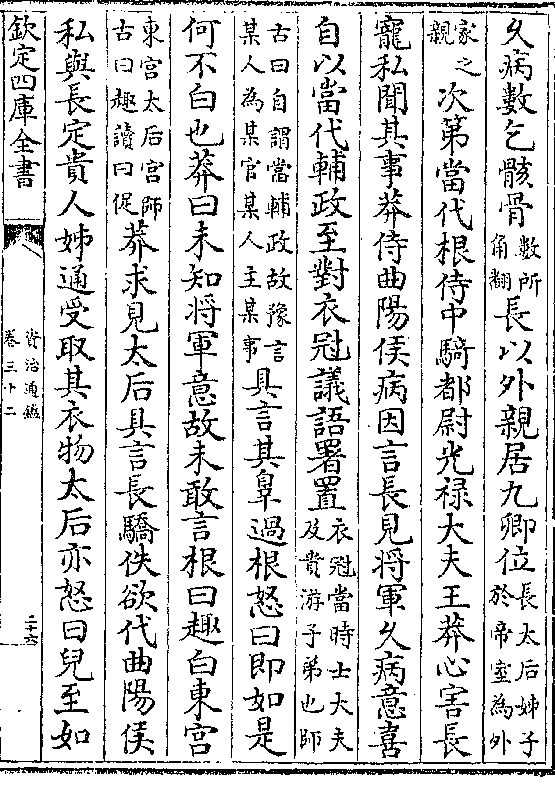 久病數乞骸骨數所角翻長以外親居九卿位長太后姊子於帝室為外
家之親次第當代根侍中騎都尉光禄大夫王莽心害長
寵私聞其事莽侍曲陽侯病因言長見将軍久病意喜
自以當代輔政至對衣冠議語署置衣冠當時士大夫及貴游子弟也師
古曰自謂當輔政故豫言某人為某官某人主某事具言其辠過根怒曰即如是
何不白也莽曰未知将軍意故未敢言根曰趣白東宮
東宮太后宮師古曰趣讀曰促莽求見太后具言長驕佚欲代曲陽侯
私與長定貴人姊通受取其衣物太后亦怒曰兒至如
欽定四庫全書
資治通鑑
卷三十二
二十六